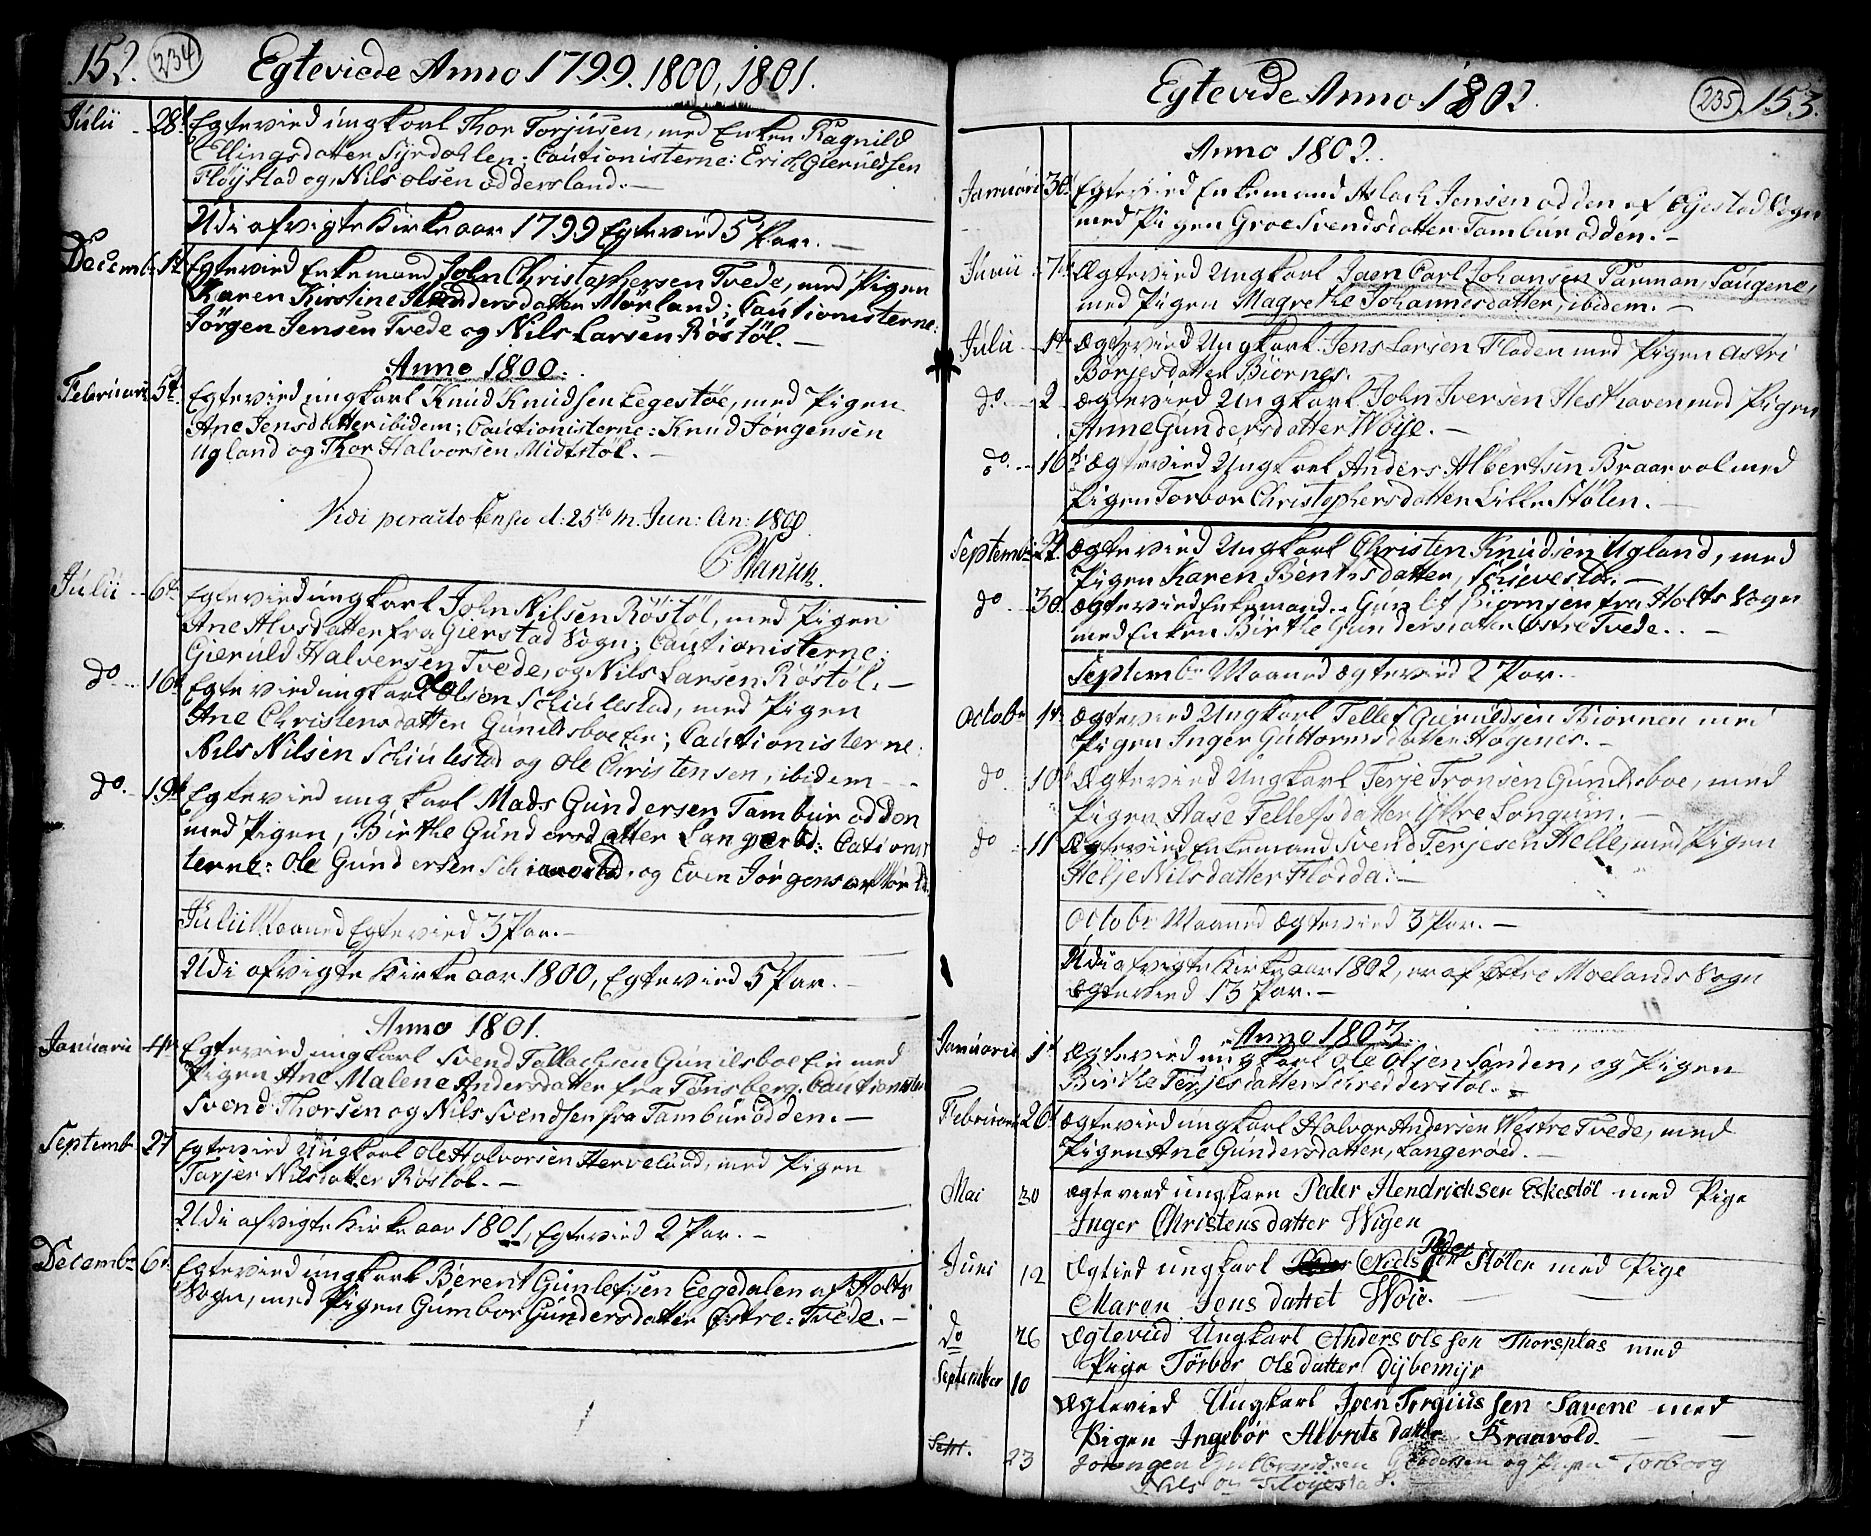 152. 234 Egteviede Anno 1799. 1800, 1801.
Julii 28de Egtevied ungkarl Thor Torjusen, med Enken Ragnild
Ellingsdatter Syrdahlen. Cautionisterne: Erich Gieruldsen
Fløystad og Nils Olsen Oddersland. —
Udi afvigte Kirke aar 1799 Egtevied 5 Par. —
Decemb. 1te Egtevied Enkemand John Christophersen Tvede, med Pigen
Karen Kirstine Andersdatter Mørland; Cautionisterne:
Jörgen Jensen Tvede og Nils Larsen Röstöl. —
Anno 1800.
Februarii 5te Egtevied ungkarl Knud Knudsen Eegestöe, med Pigen
Ane Jensdatter ibidem; Cautionisterne: Knud Jörgensen
Ugland og Thor Halvorsen Midtstöl. —
Vidi peracto censu d: 25to m. Jun: An: 1800
Julii 6te Egtevied ungkarl John Nilsen Röstöl, med Pigen
Ane Alvsdatter fra Gierstad Sogn; Cautionisterne:
Gieruld Halversen Tvede, og Nils Larsen Röstöl. —
do. 16de Egtevied ungkarl Ole Olsen Schiulestad, med Pigen
Ane Christensdatter Gunilsboe Eie; Cautionisterne:
Nils Nilsen Schiulestad og Ole Christensen, ibidem —
do. 19de Egtevied ungkarl Mads Gundersen Tambur odden
med Pigen, Birthe Gundersdatter Langeröd: Cationis
terne: Ole Gundersen og Even Jörgensen
Julii Maaned Egtevied 3 Par. —
Udi afvigte Kirke aar 1800, Egtevied 5 Par. —
Anno 1801.
Januarii 4de Egtevied ungkarl Svend Tallachsen Gunilsboe Eie med
Pigen Ane Malene Andersdatter fra Tönsberg. Cautionister
Svend Thorsen og Nils Svendsen fra Tambur odden. —
Septemb. 27 Egtevied Ungkarl Ole Halvorsen Herveland, med Pigen
Tarjer Nilsdatter Röstöl. —
Udi afvigte Kirke aar 1801, Egtevied 2 Par. —
Decembr 6te Egtevied ungkarl Berent Gunlefsen Eegedalen af Holts
Sogn, med Pigen Gumbor Gundersdatter Østre: Tvede. —
Egteviede Anno 1802. 235 153.
Anno 1802.
Januarii Egtevied Enkemand Aslach Jensen odden af Øjestad Sogn
med Pigen Groe Svendsdatter Tambur odden. —
Junii 7de Ægtevied Ungkarl Joen Carl Johansen Parman, Saugene,
med Pigen Magrethe Johannisdatter, ibidem. —
Julii 1te Ægtevied Ungkarl Jens Larsen Floden med Pigen Astri
Börjesdatter Biornes.
do. 2 Ægtevied Ungkarl John Iversen Hesthaven med Pigen
Anne Gundersdatter Woije. —
do. 16de Ægtevied Ungkarl Anders Albertsen Braarvol med
Pigen Torbor Christophersdatter Lille Stölen. —
Septembr 22 Ægtevied Ungkarl Christen Knudsen Ugland, med
Pigen Karen Bentsdatter, Schievestöl. —
do 30. Ægtevied Enkemand Gunlef Biornsen fra Holts Sogn
med Enken Birthe Gundersdatter Østre Tvede. —
Septembr Maaned Ægtevied 2 Par. —
Octobr 1te Ægtevied Ungkarl Tellef Gieruldsen Biornen med
Pigen Inger Guttormsdatter Hogenes. —
do 10de Ægtevied Ungkarl Terje Tronsen Gunilsboe, med
Pigen Aase Tellefsdatter Yttre Longum. —
do 11 Ægtevied Enkemand Svend Terjesen Helle, med Pigen
Helje Nilsdatter Flodda. —
Octobr Maaned Ægtevied 3 Par. —
Udi afvigte Kirke aar 1802, er af Østre Moelands Sogn
Egtevied 13 Par. —
Anno 1803.
Januarii 1te Ægtevied ungkarl Ole Olsen Sanden, og Pigen
Birthe Terjesdatter Schreddersstöl. —
Februarii 20de Ægtevied ungkarl Halvor Andersen Westre Tvede, med
Pigen Ane Gundersdatter, Langeröed. —
Mai 30 Ægtevied ungkarn Peder Hendrichsen Eskestöl med Pige
Inger Christensdatter Wigen
Juni 12 Ægtied ungkarl Peder Nielssen Stölen med Pige
Maren Jensdattet Woie. —
do 26 Ægtevied Ungkarl Anders Olssen Thorsplas med
Pige Törbor Olsdatter Dybemyr
September 10 Ægtevied Ungkarl Joen Torgiussen Savene med
Pigen Ingebör Albretsdatter Braavold. —
Sept. 23 og Pigen Torborg